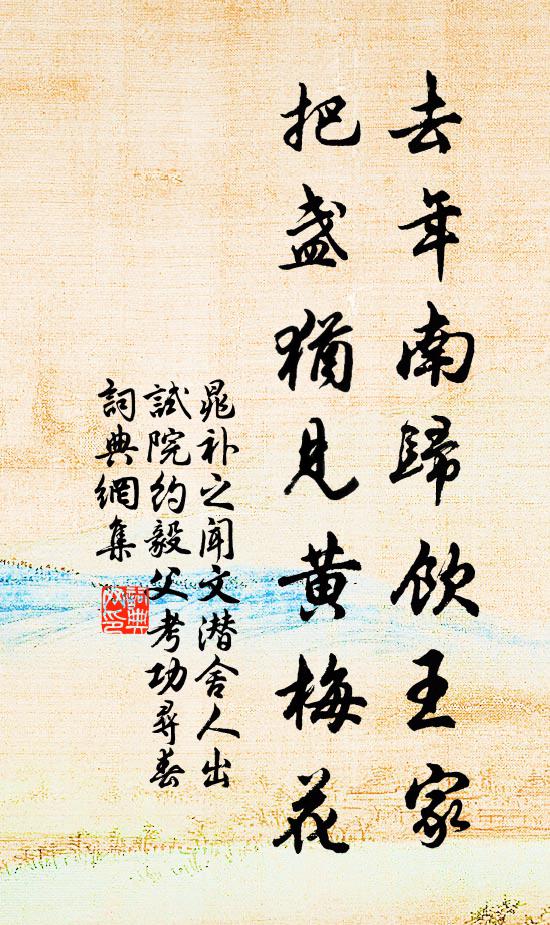 去年南歸飲王家
把盞猶見黃梅花
晁补之闻文潜舍人出
試院約毅父考功尋春
詞典網集